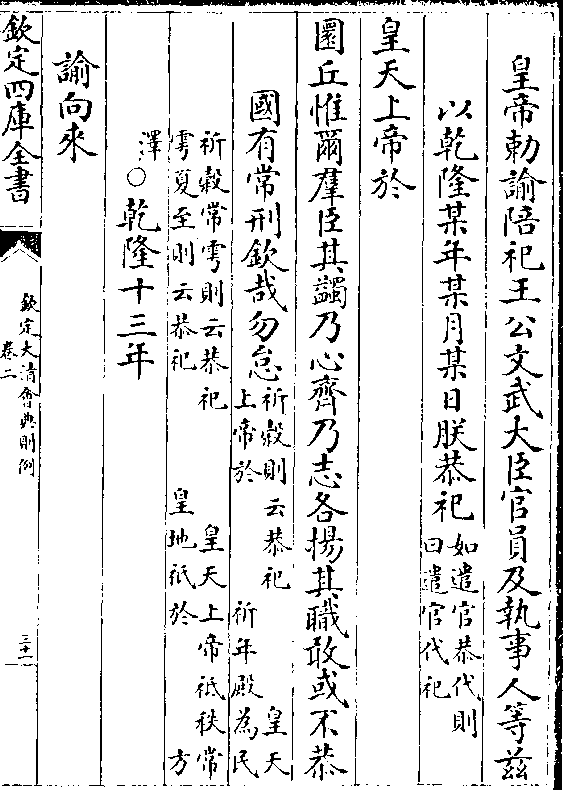 皇帝勅諭陪祀王公文武大臣官員及執事人等茲
以乾隆某年某月某日朕恭祀如遣官恭代則
曰遣官代祀
皇天上帝於
圜丘惟爾羣臣其蠲乃心齊乃志各揚其職敢或不恭
國有常刑欽哉勿怠祈穀則云恭祀 皇天
上帝於 祈年殿為民
祈穀常雩則云恭祀 皇天上帝祗秩常
雩夏至則云恭祀 皇地祇於 方
澤○乾隆十三年
諭向來
欽定四庫全書
欽定大清會典則例
卷二
三十一